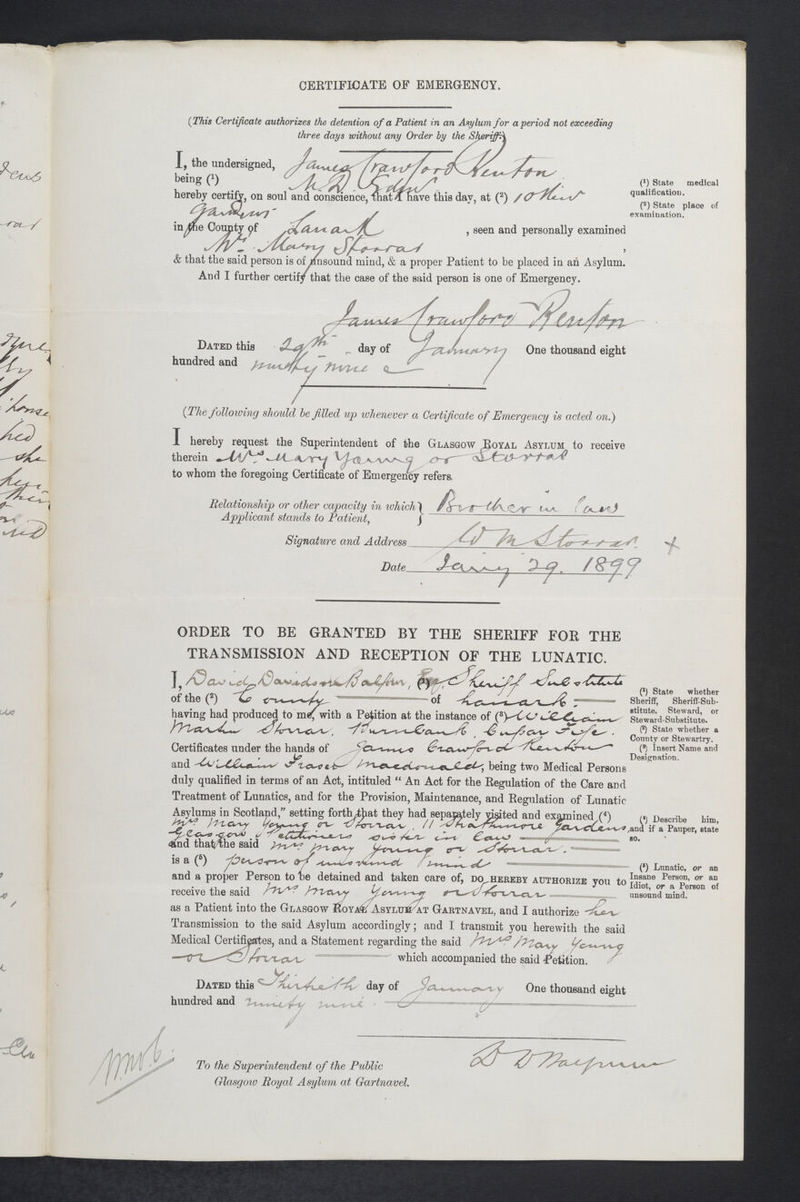 CERTIFICATE OF EMERGENCY.
(This Certificate authorizes the detention of a Patient in an Asylum for a period not exceeding
three days without any Order by the Sheriff.)
I, the undersigned, James Crawford Renton
being (¹) M.D. Edin
hereby certify, on soul and conscience, that I have this day, at (²) 10
Gardens
in the County of Lanark , seen and personally examined
Mrs. Mary Storrar ,
& that the said person is of unsound mind, & a proper Patient to be placed in an Asylum.
And I further certify that the case of the said person is one of Emergency.
(¹) State medical
qualification.
(²) State place of
examination.
James Crawford Renton
DATED this 29th day of January One thousand eight
hundred and ninety nine
(The following should be filled up whenever a Certificate of Emergency is acted on.)
I hereby request the Superintendent of the GLASGOW ROYAL ASYLUM to receive
therein Mrs. Mary Young or Storrar
to whom the foregoing Certificate of Emergency refers.
Relationship or other capacity in which }
Applicant stands to Patient, } Brother in law
Signature and Address W M Storrar. x
Date Jany 29. 1899
ORDER TO BE GRANTED BY THE SHERIFF FOR THE
TRANSMISSION AND RECEPTION OF THE LUNATIC.
I, David Davidson Balfour, Esq. Sheriff Substitute
of the (²) County of Lanark.
having had produced to me, with a Petition at the instance of (³) William
Martin Storrar, Burnbank, Cupar Fife.
Certificates under the hands of James Crawford Renton
and William Fraser Macdonald, being two Medical Persons
duly qualified in terms of an Act, intituled “ An Act for the Regulation of the Care and
Treatment of Lunatics, and for the Provision, Maintenance, and Regulation of Lunatic
Asylums in Scotland,” setting forth that they had separately visited and examined (⁴)
Mrs Mary Young or Storrar, 11 Strathmore Gardens,
Glasgow, Petitioners sister in law
and that the said Mrs Mary Young or Storrar.
is a (⁵) person of unsound mind
and a proper Person to be detained and taken care of, DO HEREBY AUTHORIZE you to
receive the said Mrs Mary Young or Storrar
as a Patient into the GLASGOW ROYAL ASYLUM AT GARTNAVEL, and I authorize her
Transmission to the said Asylum accordingly; and I transmit you herewith the said
Medical Certificates, and a Statement regarding the said Mrs Mary Young
or Storrar which accompanied the said Petition.
(¹) State whether
Sheriff, Sheriff-Sub-
stitute, Steward, or
Steward-Substitute.
(²) State whether a
County or Stewartry.
(³) Insert Name and
Designation.
(⁴) Describe him,
and if a Pauper, state
so.
(⁵) Lunatic, or an
Insane Person, or an
Idiot, or a Person of
unsound mind.
DATED this Thirtieth day of January One thousand eight
hundred and ninety nine.
D D Balfour
To the Superintendent of the Public
Glasgow Royal Asylum at Gartnavel.